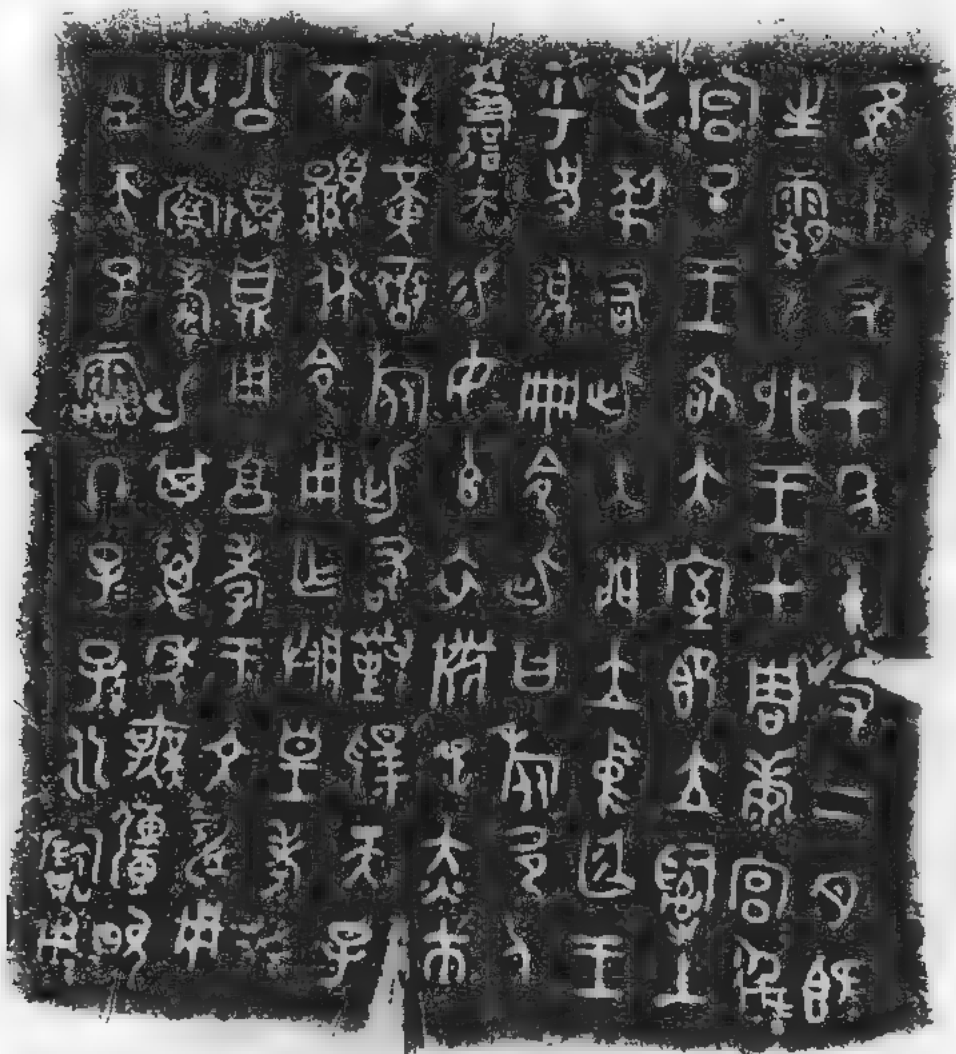 隹十又七年十又二月既
生霸乙卯王才周康宮徲
宮旦王各大室即立𤔲土
毛叔右此入門立中廷王
乎史翏冊令此曰旅邑人
善夫易女玄衣黹屯赤市
朱黃䜌旅此敢對揚天子
不顯休令用乍朕皇考癸
公尊鼎用享孝于文申用
匄眉壽此其萬年無疆畯
臣天子霝冬子子孫永寶用